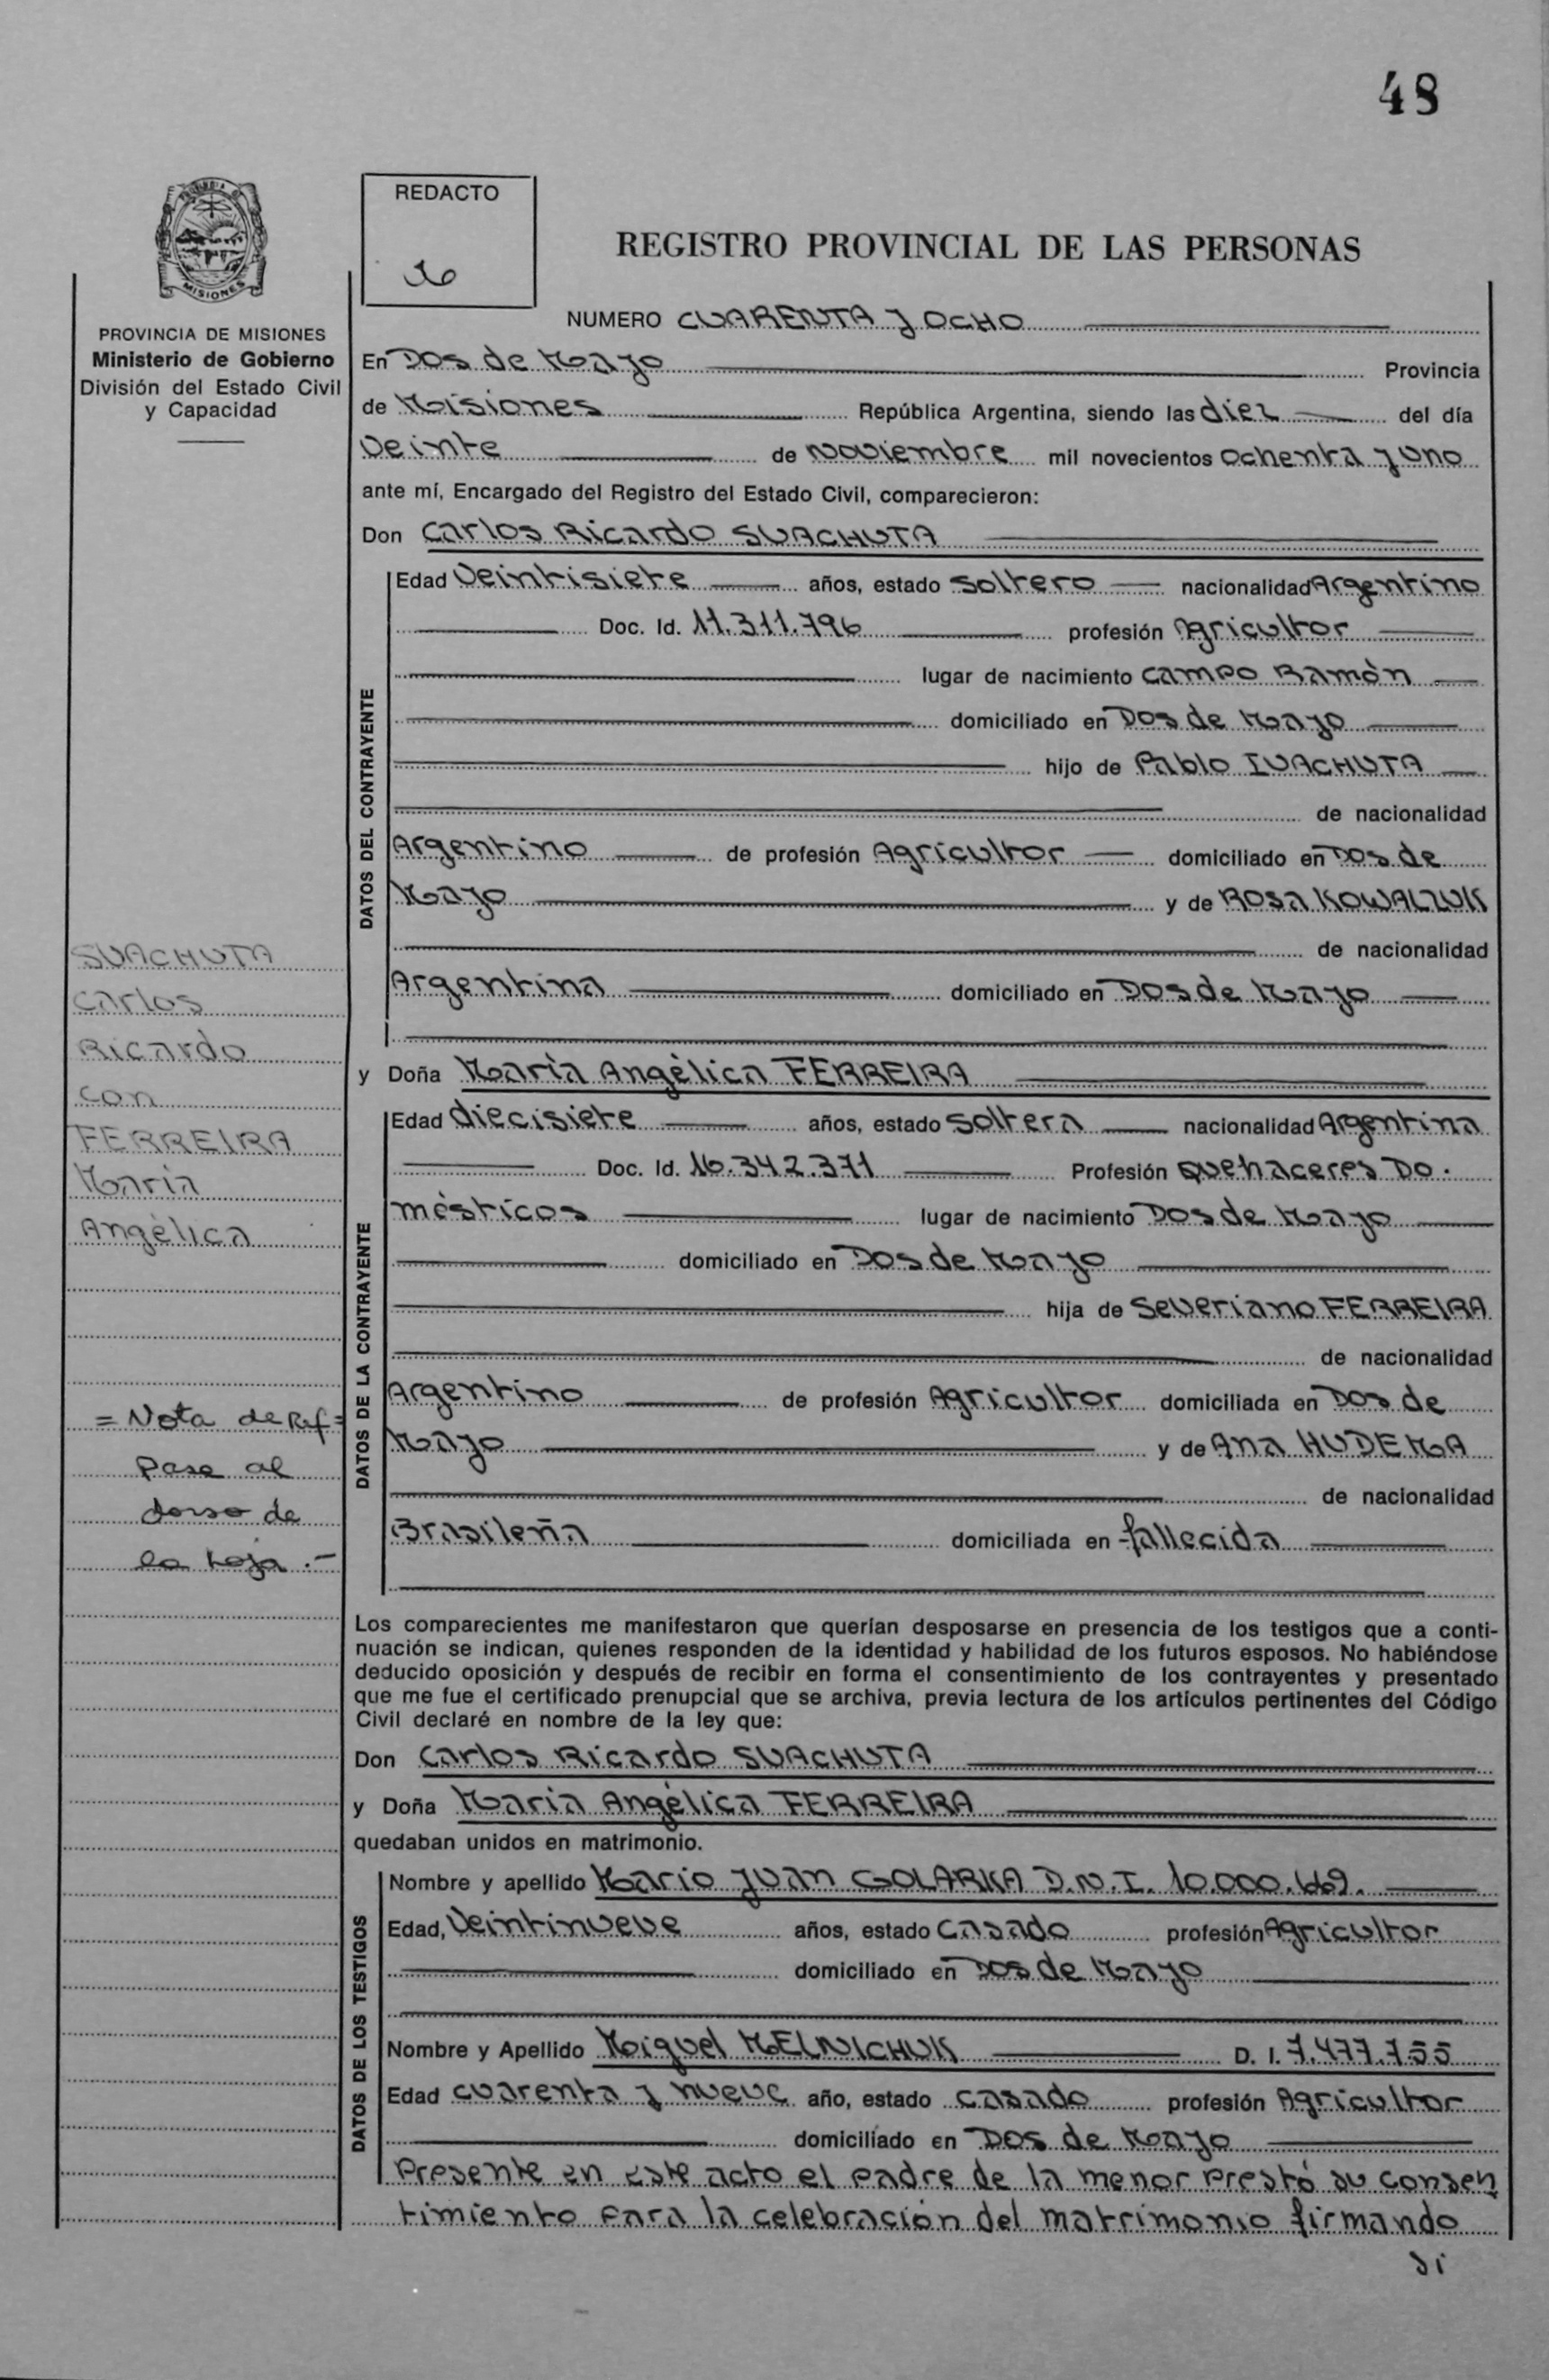 48
REDACTO
REGISTRO PROVINCIAL DE LAS PERSONAS
MISIONES
PROVINCIA DE MISIONES
Ministerio de Gobierno
División del Estado Civil
y Capacidad
NUMERO CUARENTA y OCHO
En Dos de Mayo Provincia
de Misiones República Argentina, siendo las diez del día
Veinte de Noviembre mil novecientos ochenta y uno
ante mí, Encargado del Registro del Estado Civil, comparecieron:
Don Carlos Ricardo SUACHUTA
DATOS DEL CONTRAYENTE
Edad Veintisiete años, estado soltero nacionalidad Argentino
Doc. Id. 11.311.796 profesión Agricultor
lugar de nacimiento Campo Ramòn
domiciliado en Dos de Mayo
hijo de Pablo IUACHUTA
de nacionalidad
Argentino de profesión Agricultor domiciliado en Dos de
Mayo y de Rosa KOWALZUK
de nacionalidad
Argentina domiciliado en Dos de Mayo
y Doña Marìa Angèlica FERREIRA
DATOS DE LA CONTRAYENTE
Edad diecisiete años, estado soltera nacionalidad Argentina
Doc. Id. 16.342.371 Profesión Quehaceres Do.
mèsticos lugar de nacimiento Dos de Mayo
domiciliado en Dos de Mayo
hija de Severiano FERREIRA
de nacionalidad
Argentino de profesión Agricultor domiciliada en Dos de
Mayo y de Ana HUDEMA
de nacionalidad
Brasileña domiciliada en fallecida
SUACHUTA
Carlos
Ricardo
con
FERREIRA
Marìa
Angèlica
= Nota de Ref =
Pase al
dorso de
la hoja.-
Los comparecientes me manifestaron que querían desposarse en presencia de los testigos que a conti-
nuación se indican, quienes responden de la identidad y habilidad de los futuros esposos. No habiéndose
deducido oposición y después de recibir en forma el consentimiento de los contrayentes y presentado
que me fue el certificado prenupcial que se archiva, previa lectura de los artículos pertinentes del Código
Civil declaré en nombre de la ley que:
Don Carlos Ricardo SUACHUTA
y Doña Marìa Angèlica FERREIRA
quedaban unidos en matrimonio.
DATOS DE LOS TESTIGOS
Nombre y apellido Mario Juan GOLARKA D.N.I. 10.000.669.
Edad, Veintinueve años, estado casado profesión Agricultor
domiciliado en Dos de Mayo
Nombre y Apellido Miguel MELNICHUK D. I. 7.477.755
Edad cuarenta y nueve año, estado casado profesión Agricultor
domiciliado en Dos de Mayo
Presente en este acto el padre de la menor prestó su consen
timiento para la celebración del matrimonio firmando